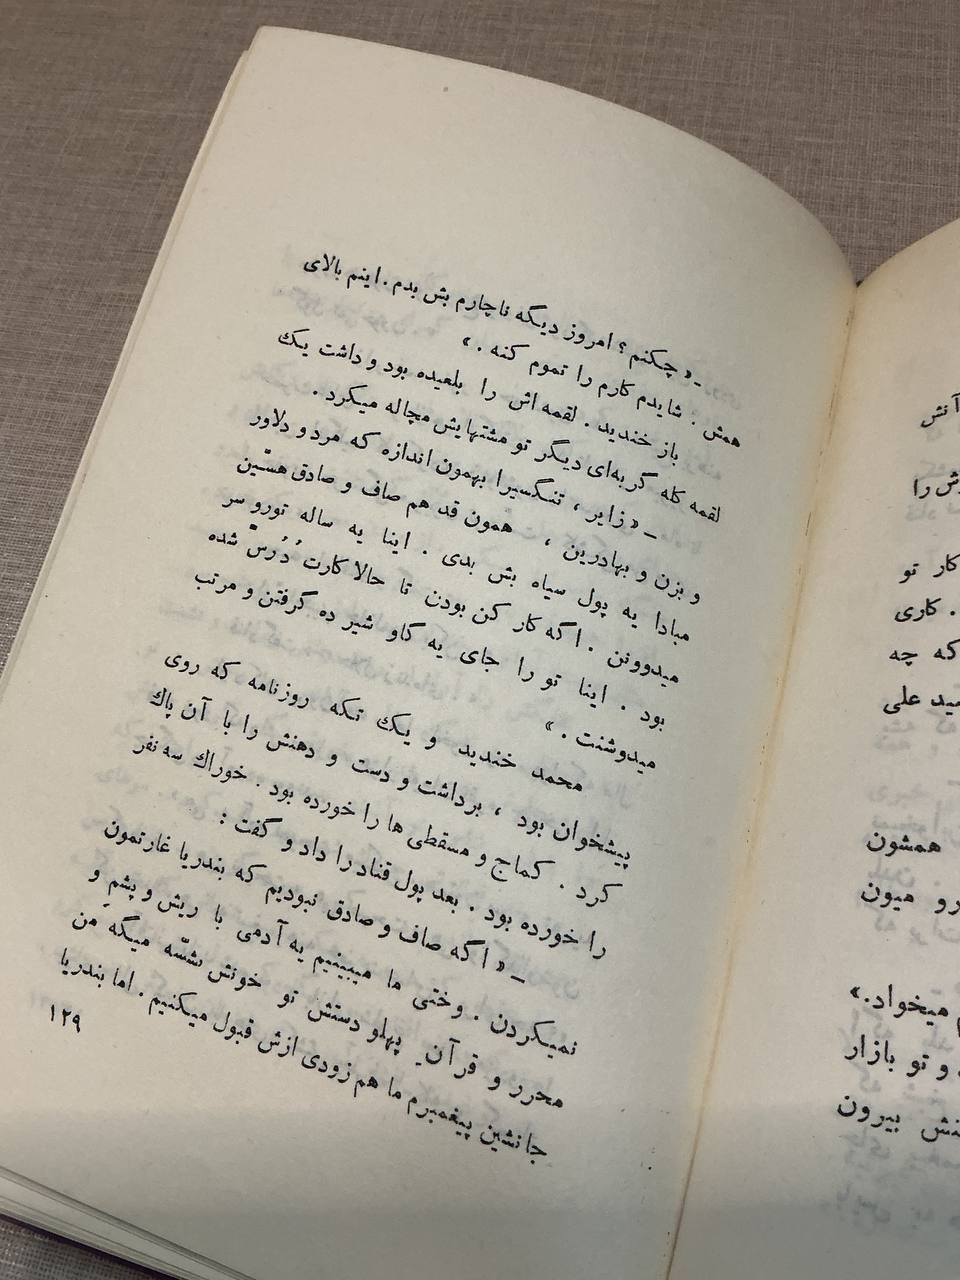 ـ «چکنم؟ امروز دیگه ناچارم بش بدم. اینم بالای
همش. شایدم کارم را تموم کنه.»
باز خندید. لقمه اش را بلعیده بود و داشت یک
لقمه کله گربه‌ای دیگر تو مشتهایش مچاله میکرد.
ـ «زایر، تنگسیرا بهمون اندازه که مرد و دلاور
و بزن و بهادرین، همون قد هم صاف و صادق هسّین
مبادا یه پول سیاه بش بدی. اینا یه ساله تورو سر
میدوونن. اگه کار کن بودن تا حالا کارت دُرسّ شده
بود. اینا تو را جای یه گاو شیر ده گرفتن و مرتب
میدوشنت.»
محمد خندید و یک تکه روزنامه که روی
پیشخوان بود، برداشت و دست و دهنش را با آن پاك
کرد. کماج و مسقطی ها را خورده بود. خوراك سه نفر
را خورده بود. بعد پول قناد را داد و گفت:
ـ «اگه صاف و صادق نبودیم که بندریا غارتمون
نمیکردن. وختی ما میبینیم یه آدمی با ریش و پشم و
محرر و قرآن پهلو دستش تو خونش نشسّه میگه من
جانشین پیغمبرم ما هم زودی ازش قبول میکنیم. اما بندریا
۱۲۹
آنش
ش را
کار تو
. کاری
که چه
سید علی
همشون
رو میون
م میخواد.»
و تو بازار
نش بیرون